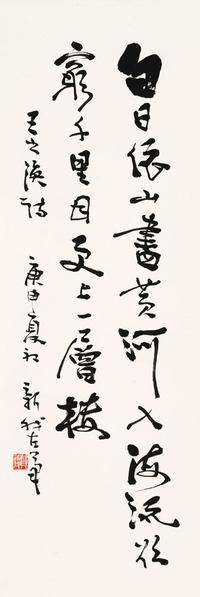 白日依山盡黃河入海流欲
窮千里目更上一層樓
王之渙詩 庚申夏初 新我左筆